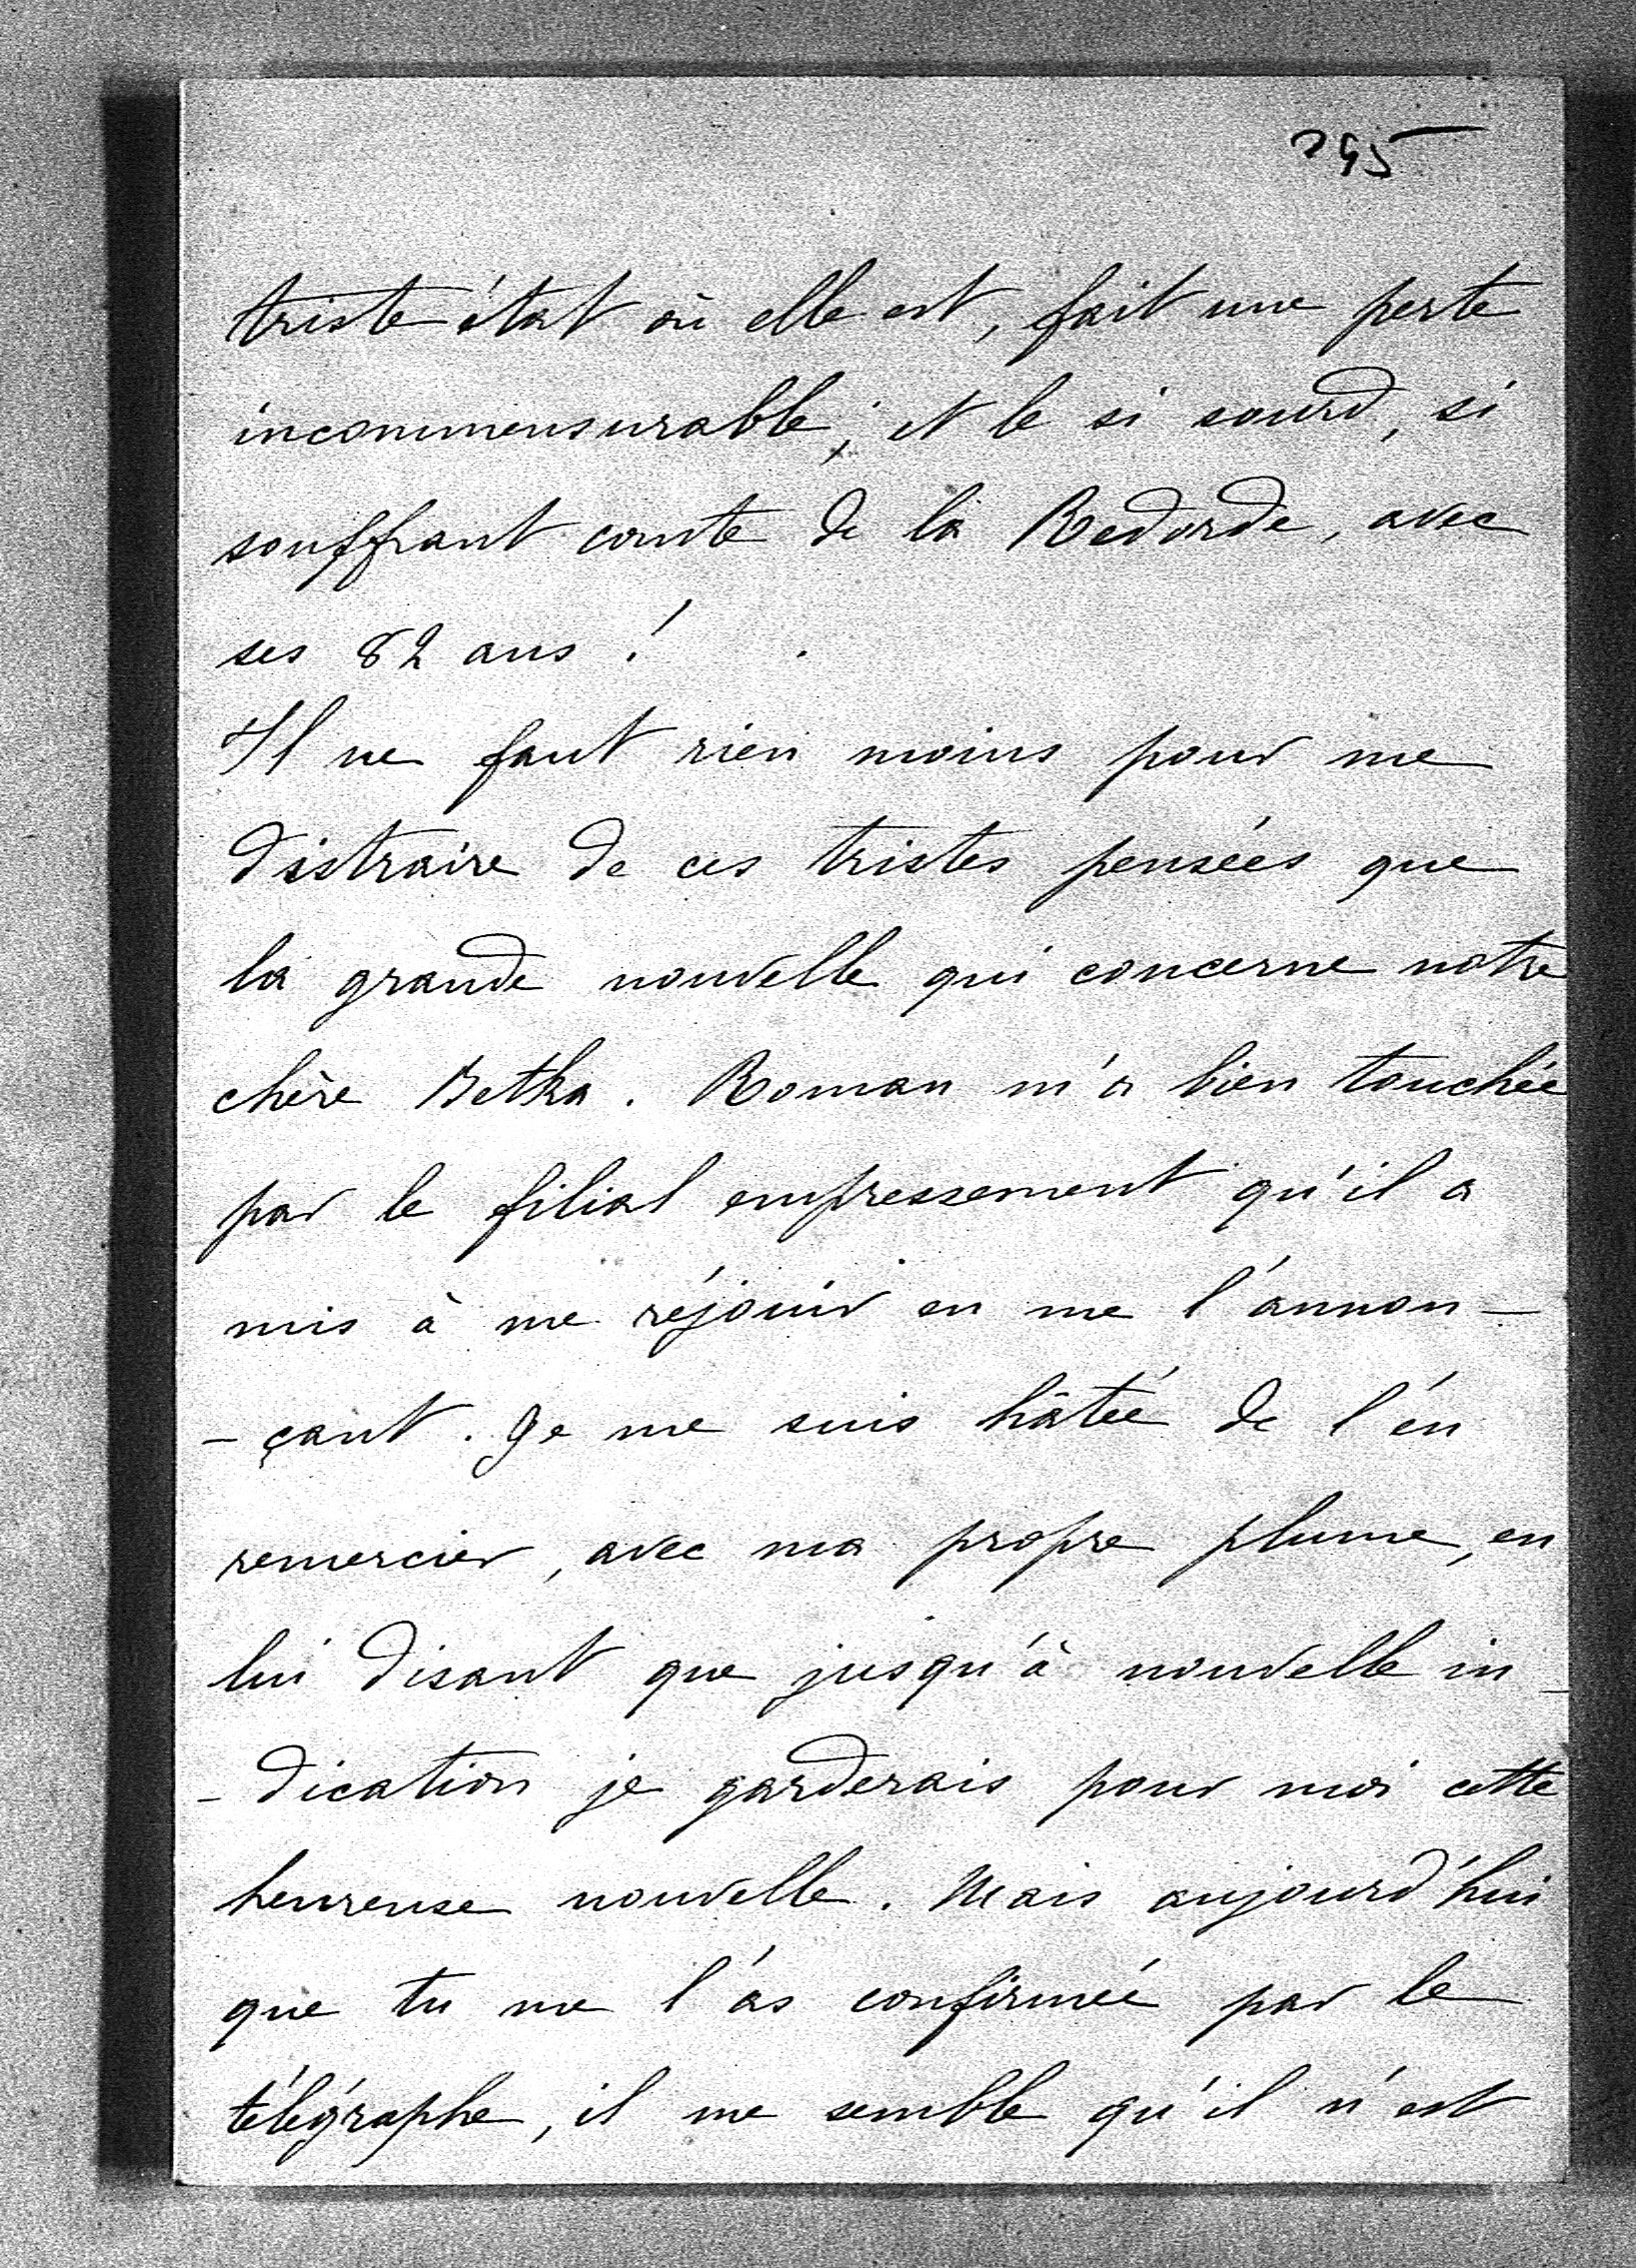 295
triste état où elle est, fait une perte
incommensurable; et le si sourd, si
souffrant comte de la Redorde, avec
ses 82 ans !
Il ne faut rien moins pour me
distraire de ces tristes pensées que
la grande nouvelle qui concerne notre
chère Betka. Roman m'a bien touchée
par le filial empressement qu'il a
mis à me réjouir en me l'annon-
-çant. Je me suis hâtée de l'en
remercier, avec ma propre plume, en
lui disant que jusqu'à nouvelle in-
-dication je garderais pour moi cette
heureuse nouvelle. Mais aujourd'hui
que tu me l'as confirmée par le
télégraphe, il me semble qu'il n'est